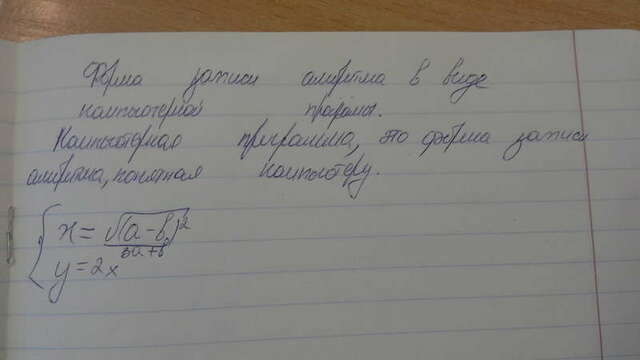 Форма записи алгоритма в виде
компьютерной программы.
Компьютерная программа, это форма записи
алгоритма, понятная компьютеру.
x = √(a-b)²
3a+b
y = 2x